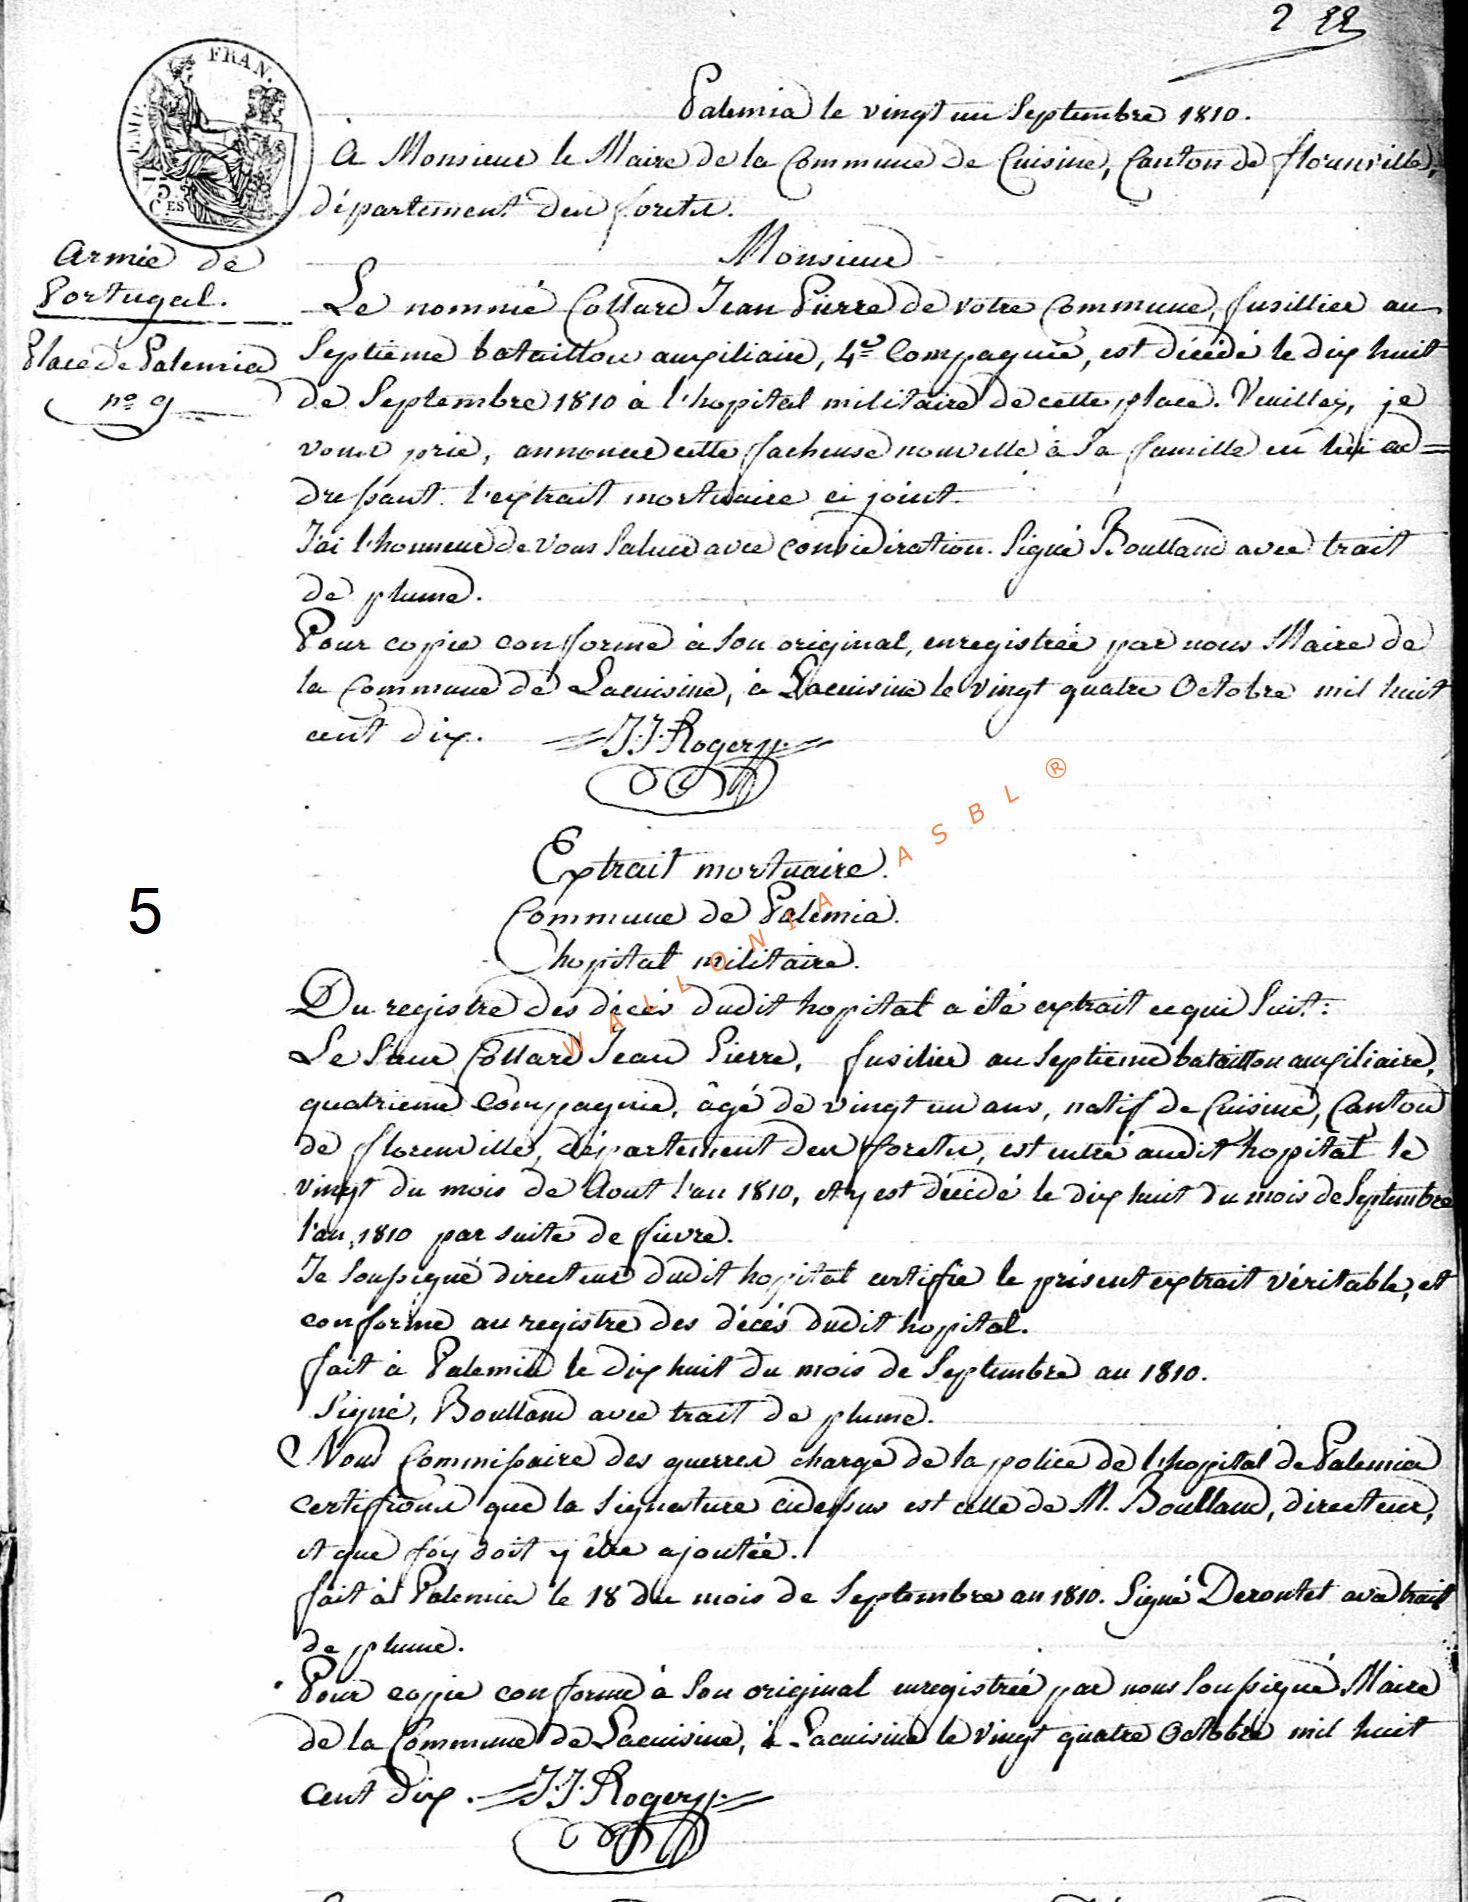 2 22
EMP. FRAN.
75
C.ES
Palemia le vingt un Septembre 1810.
A Monsieur le Maire de la Commune de Cuisine, Canton de florenville,
département des forets.
Monsieur
Armée de
Portugal.
Place de Palemia
no 9
Le nommé Collard Jean Pierre de votre Commune, fusillier au
Septieme bataillon auxiliaire, 4e Compagnie, est décédé le dix huit
de Septembre 1810 à l'hopital militaire de cette place. Veuillez, je
vous prie, annoncer cette facheuse nouvelle à Sa famille en lui ad=
dressant l'extrait mortuaire ci joint.
J'ai l'honneur de vous Saluer avec considération. Signé Boulland avec trait
de plume.
Pour copie conforme à Son original, enregistrée par nous Maire de
la Commune de Lacuisine, à Lacuisine le vingt quatre Octobre mil huit
cent dix. J.J. Rogery
5
Extrait mortuaire.
Commune de Palemia.
hopital militaire.
Du registre des décés dudit hopital a été extrait ce qui Suit:
Le Sieur Collard Jean Pierre, fusilier au Septieme bataillon auxiliaire,
quatrieme Compagnie, âgé de vingt un ans, natif de Cuisine, Canton
de florenville, département des forets, est entré audit hopital le
vingt du mois de Aout l'an 1810, et y est décédé le dix huit du mois de Septembre
l'an 1810 par suite de fievre.
Je Soussigné directeur dudit hopital certifie le présent extrait véritable, et
conforme au registre des décés dudit hopital.
fait à Palemia le dix huit du mois de Septembre an 1810.
Signé, Boulland avec trait de plume.
Nous Commissaire des guerres chargé de la police de l'hopital de Palemia
certifions que la Signature cidessus est celle de M. Boulland, directeur,
et que foy doit y être ajoutée.
fait à Palemia le 18 du mois de Septembre an 1810. Signé Deroutet avec trait
de plume.
Pour copie conforme à Son original enregistrée par nous Soussigné Maire
de la Commune de Lacuisine, à Lacuisine le vingt quatre Octobre mil huit
Cent dix. J.J. Rogery
WALLONIA ASBL ®